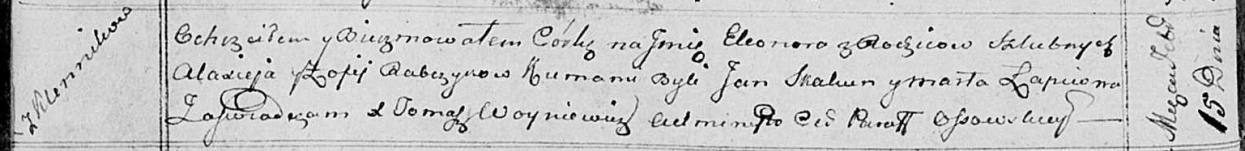 z Klennikow
Ochrzciłem y Bierzmowałem Córkę na Jmię Eleonora z Rodzicow Szlubnych
Alaxieja y Zofij Rabczykow Kumami byli Jan Skakun y marta Łapciowna
Zaswiadczam X Tomasz Woyniewicz Adminstr Cer Paroff Ossowskiey
15 Dnia